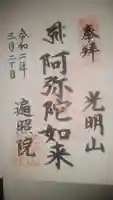 奉拝
光明山
阿弥陀如来
遍照院
令和二年
三月二十日